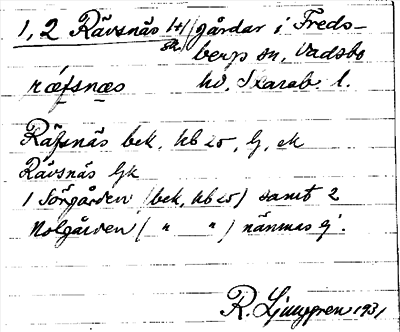 1, 2 Rävsnäs 1+1/sk. gårdar i Freds-
berg sn, Vadsbo
ræfsnæs hd, Skarab. l.
Räfsnäs bek, hb 20, Gj, ek
Rävsnäs Gk
1 Sörgården (bek, hb 20) samt 2
Nolgården ( " " ) nämnas ej.
R. Ljunggren 1931